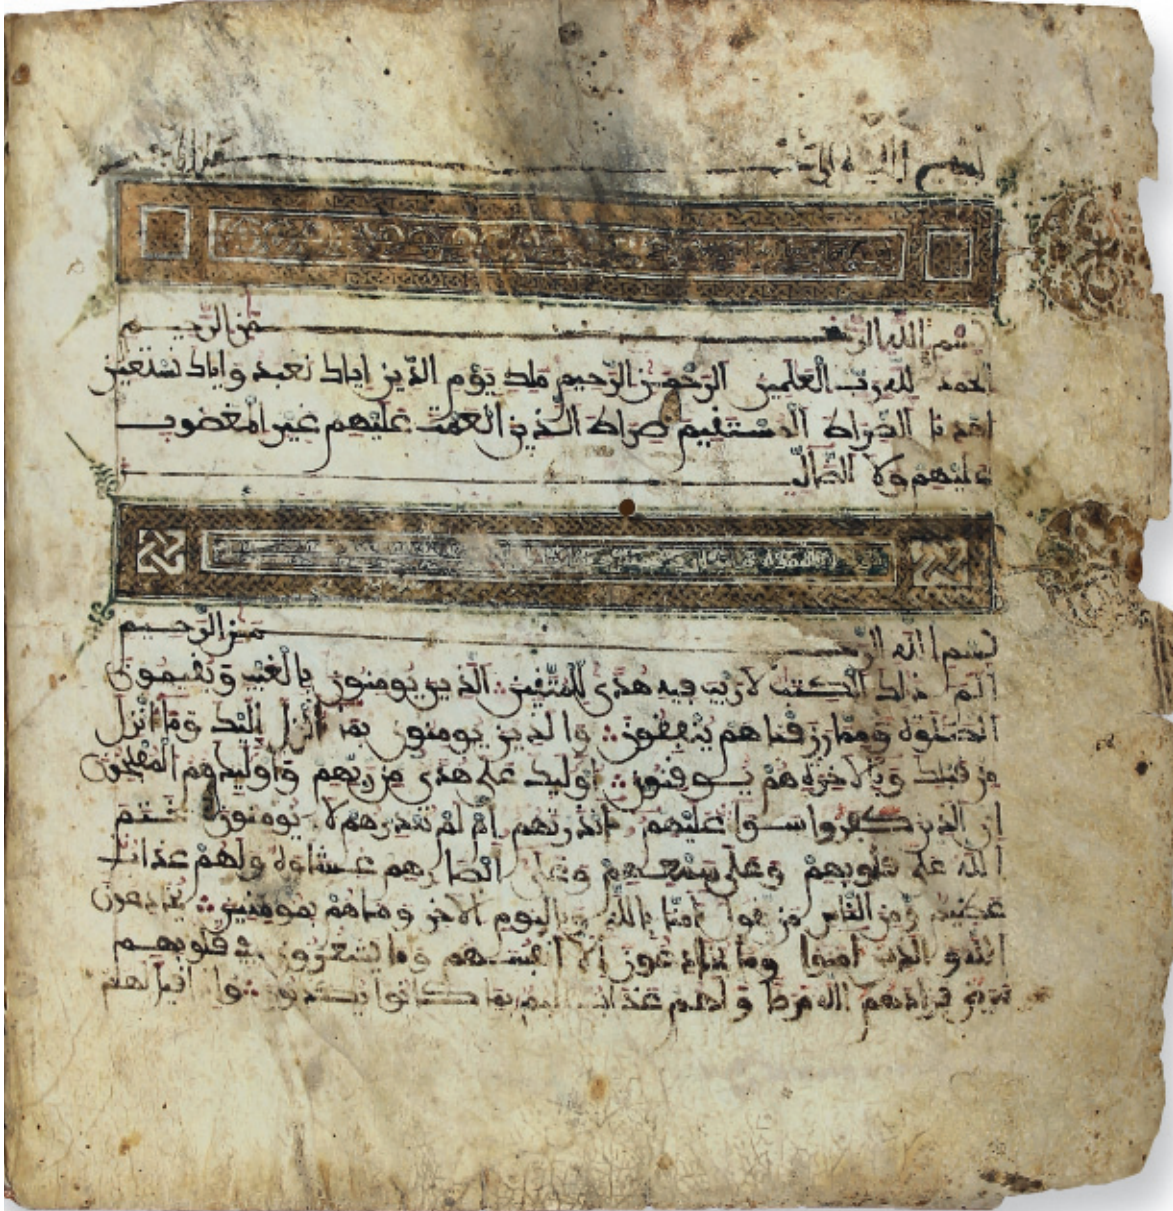 بسم الله الرحمن الرحيم
بسم الله الرحمن الرحيم
الحمد لله رب العلمين الرحمن الرحيم ملك يوم الدين اياك نعبد واياك نستعين
اهدنا الصراط المستقيم صراط الذين انعمت عليهم غير المغضوب
عليهم ولا الضالين
بسم الله الرحمن الرحيم
الم ذلك الكتب لا ريب فيه هدى للمتقين الذين يومنون بالغيب ويقيمون
الصلوة ومما رزقناهم ينفقون والذين يومنون بما انزل اليك وما انزل
من قبلك وبالاخرة هم يوقنون اوليك على هدى من ربهم واوليك هم المفلحون
ان الذين كفروا سوا عليهم انذرتهم ام لم تنذرهم لا يومنون ختم
الله على قلوبهم وعلى سمعهم وعلى ابصارهم غشاوة ولهم عذاب
عظيم ومن الناس من يقول امنا بالله وباليوم الاخر وما هم بمومنين يخادعون
الله والذين امنوا وما يخادعون الا انفسهم وما يشعرون في قلوبهم
مرض فزادهم الله مرضا ولهم عذاب اليم بما كانوا يكذبون واذا قيل لهم